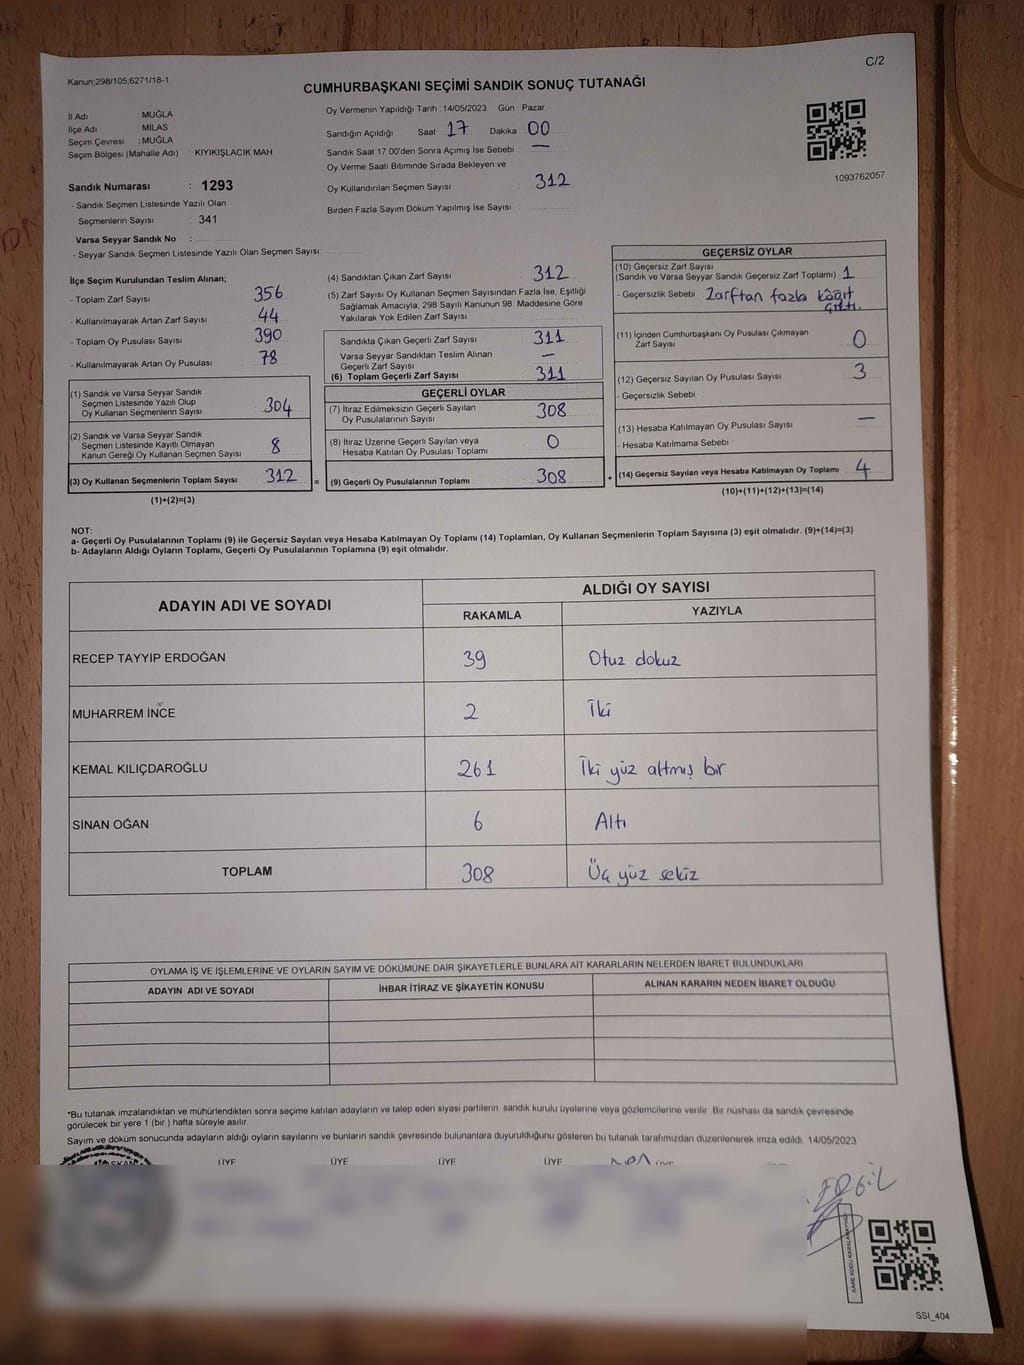 Kanun;298/105;6271/18-1
C/2
CUMHURBAŞKANI SEÇİMİ SANDIK SONUÇ TUTANAĞI
İl Adı : MUĞLA
İlçe Adı : MİLAS
Seçim Çevresi : MUĞLA
Seçim Bölgesi (Mahalle Adı) : KIYIKIŞLACIK MAH
Sandık Numarası : 1293
- Sandık Seçmen Listesinde Yazılı Olan
Seçmenlerin Sayısı : 341
Varsa Seyyar Sandık No :
- Seyyar Sandık Seçmen Listesinde Yazılı Olan Seçmen Sayısı:
Oy Vermenin Yapıldığı Tarih : 14/05/2023 Gün : Pazar
Sandığın Açıldığı Saat 17 Dakika 00
Sandık Saat 17:00'den Sonra Açımış İse Sebebi : —
Oy Verme Saati Bitiminde Sırada Bekleyen ve
Oy Kullandırılan Seçmen Sayısı : 312
Birden Fazla Sayım Döküm Yapılmış İse Sayısı :
1093762057
İlçe Seçim Kurulundan Teslim Alınan;
- Toplam Zarf Sayısı 356
- Kullanılmayarak Artan Zarf Sayısı : 44
- Toplam Oy Pusulası Sayısı : 390
- Kullanılmayarak Artan Oy Pusulası : 78
(1) Sandık ve Varsa Seyyar Sandık
Seçmen Listesinde Yazılı Olup
Oy Kullanan Seçmenlerin Sayısı : 304
(2) Sandık ve Varsa Seyyar Sandık
Seçmen Listesinde Kayıtlı Olmayan
Kanun Gereği Oy Kullanan Seçmen Sayısı : 8
(3) Oy Kullanan Seçmenlerin Toplam Sayısı : 312
(1)+(2)=(3)
(4) Sandıktan Çıkan Zarf Sayısı : 312
(5) Zarf Sayısı Oy Kullanan Seçmen Sayısından Fazla İse, Eşitliği
Sağlamak Amacıyla, 298 Sayılı Kanunun 98. Maddesine Göre
Yakılarak Yok Edilen Zarf Sayısı :
Sandıkta Çıkan Geçerli Zarf Sayısı : 311
Varsa Seyyar Sandıktan Teslim Alınan
Geçerli Zarf Sayısı : —
(6) Toplam Geçerli Zarf Sayısı : 311
=
GEÇERLİ OYLAR
(7) İtiraz Edilmeksizin Geçerli Sayılan
Oy Pusulalarının Sayısı : 308
(8) İtiraz Üzerine Geçerli Sayılan veya
Hesaba Katılan Oy Pusulası Toplamı : 0
(9) Geçerli Oy Pusulalarının Toplamı : 308
+
GEÇERSİZ OYLAR
(10) Geçersiz Zarf Sayısı
(Sandık ve Varsa Seyyar Sandık Geçersiz Zarf Toplamı) : 1
- Geçersizlik Sebebi : Zarftan fazla kâğıt
çıktı.
(11) İçinden Cumhurbaşkanı Oy Pusulası Çıkmayan
Zarf Sayısı : 0
(12) Geçersiz Sayılan Oy Pusulası Sayısı : 3
- Geçersizlik Sebebi :
(13) Hesaba Katılmayan Oy Pusulası Sayısı : —
- Hesaba Katılmama Sebebi :
(14) Geçersiz Sayılan veya Hesaba Katılmayan Oy Toplamı : 4
(10)+(11)+(12)+(13)=(14)
NOT:
a- Geçerli Oy Pusulalarının Toplamı (9) ile Geçersiz Sayılan veya Hesaba Katılmayan Oy Toplamı (14) Toplamları, Oy Kullanan Seçmenlerin Toplam Sayısına (3) eşit olmalıdır. (9)+(14)=(3)
b- Adayların Aldığı Oyların Toplamı, Geçerli Oy Pusulalarının Toplamına (9) eşit olmalıdır.
ADAYIN ADI VE SOYADI ALDIĞI OY SAYISI
RAKAMLA YAZIYLA
RECEP TAYYİP ERDOĞAN 39 Otuz dokuz
MUHARREM İNCE 2 İki
KEMAL KILIÇDAROĞLU 261 İki yüz altmış bir
SİNAN OĞAN 6 Altı
TOPLAM 308 Üç yüz sekiz
OYLAMA İŞ VE İŞLEMLERİNE VE OYLARIN SAYIM VE DÖKÜMÜNE DAİR ŞİKAYETLERLE BUNLARA AİT KARARLARIN NELERDEN İBARET BULUNDUKLARI
ADAYIN ADI VE SOYADI İHBAR İTİRAZ VE ŞİKAYETİN KONUSU ALINAN KARARIN NEDEN İBARET OLDUĞU
*Bu tutanak imzalandıktan ve mühürlendikten sonra seçime katılan adayların ve talep eden siyasi partilerin sandık kurulu üyelerine veya gözlemcilerine verilir. Bir nüshası da sandık çevresinde
görülecek bir yere 1 (bir ) hafta süreyle asılır.
Sayım ve döküm sonucunda adayların aldığı oyların sayılarını ve bunların sandık çevresinde bulunanlara duyurulduğunu gösteren bu tutanak tarafımızdan düzenlenerek imza edildi. 14/05/2023
ÜYE ÜYE ÜYE ÜYE ÜYE
SSI_404